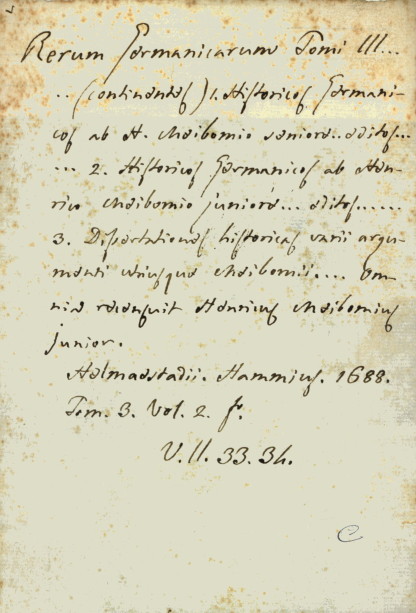 Rerum Germanicarum Tomi III...
..(continentes) 1. Historicos Germani-
cos ab H. Meibomio seniore..editos...
... 2. Historicos Germanicos ab Hen-
rico Meibomio juniore... editos......
3. Dissertationes historicas varii argu-
menti utriusque Meibomii.... Om-
nia recensuit Henricus Meibomius
junior.
Helmaestadii. Hammius. 1688.
Tom. 3. Vol. 2. f.
V. 11. 33. 34.
C